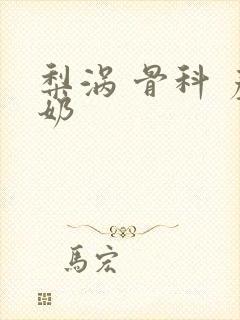 梨涡 骨科
奶
馬宏